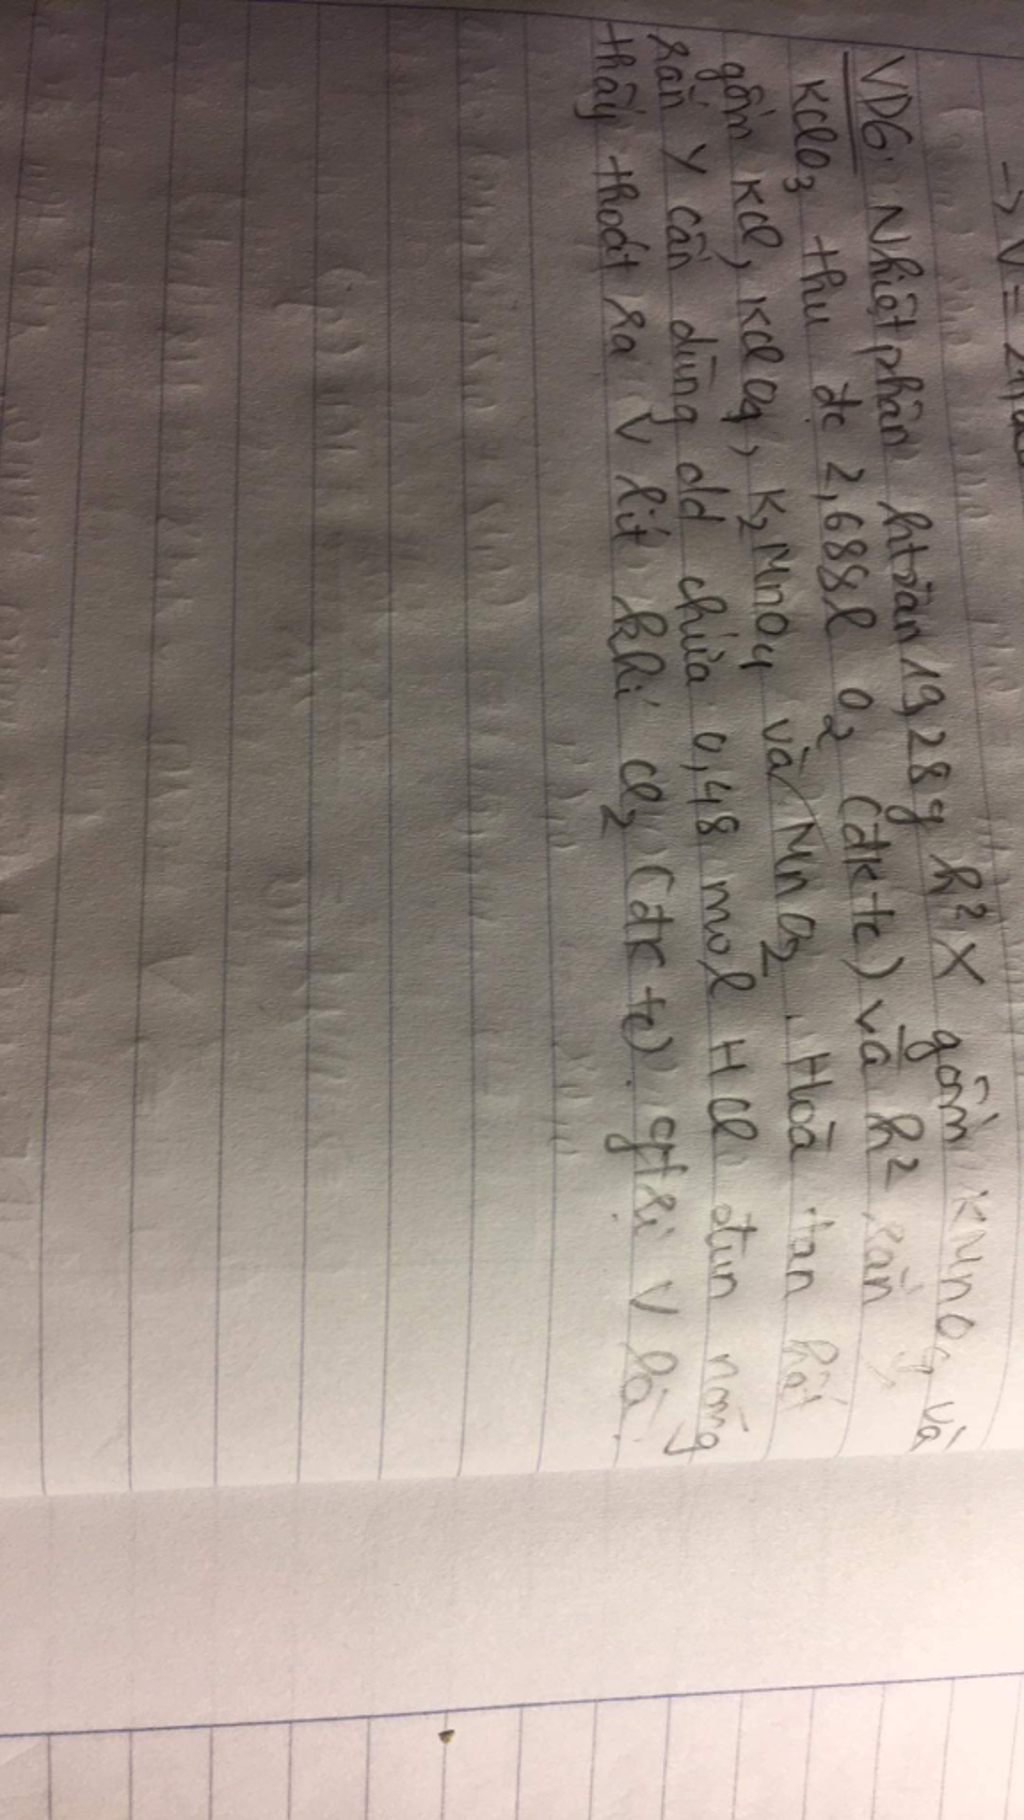 → V = 21,
VD6: Nhiệt phân htoàn 19,28g h² X gồm KMnO4 và
KClO3 thu đc 2,688l O2 (đktc) và h² rắn Y
gồm KCl, KClO3, K2MnO4 và MnO2. Hoà tan hết
rắn Y cần dùng dd chứa 0,48 mol HCl đun nóng
thấy thoát ra V lít khí Cl2 (đktc). gtrị V là